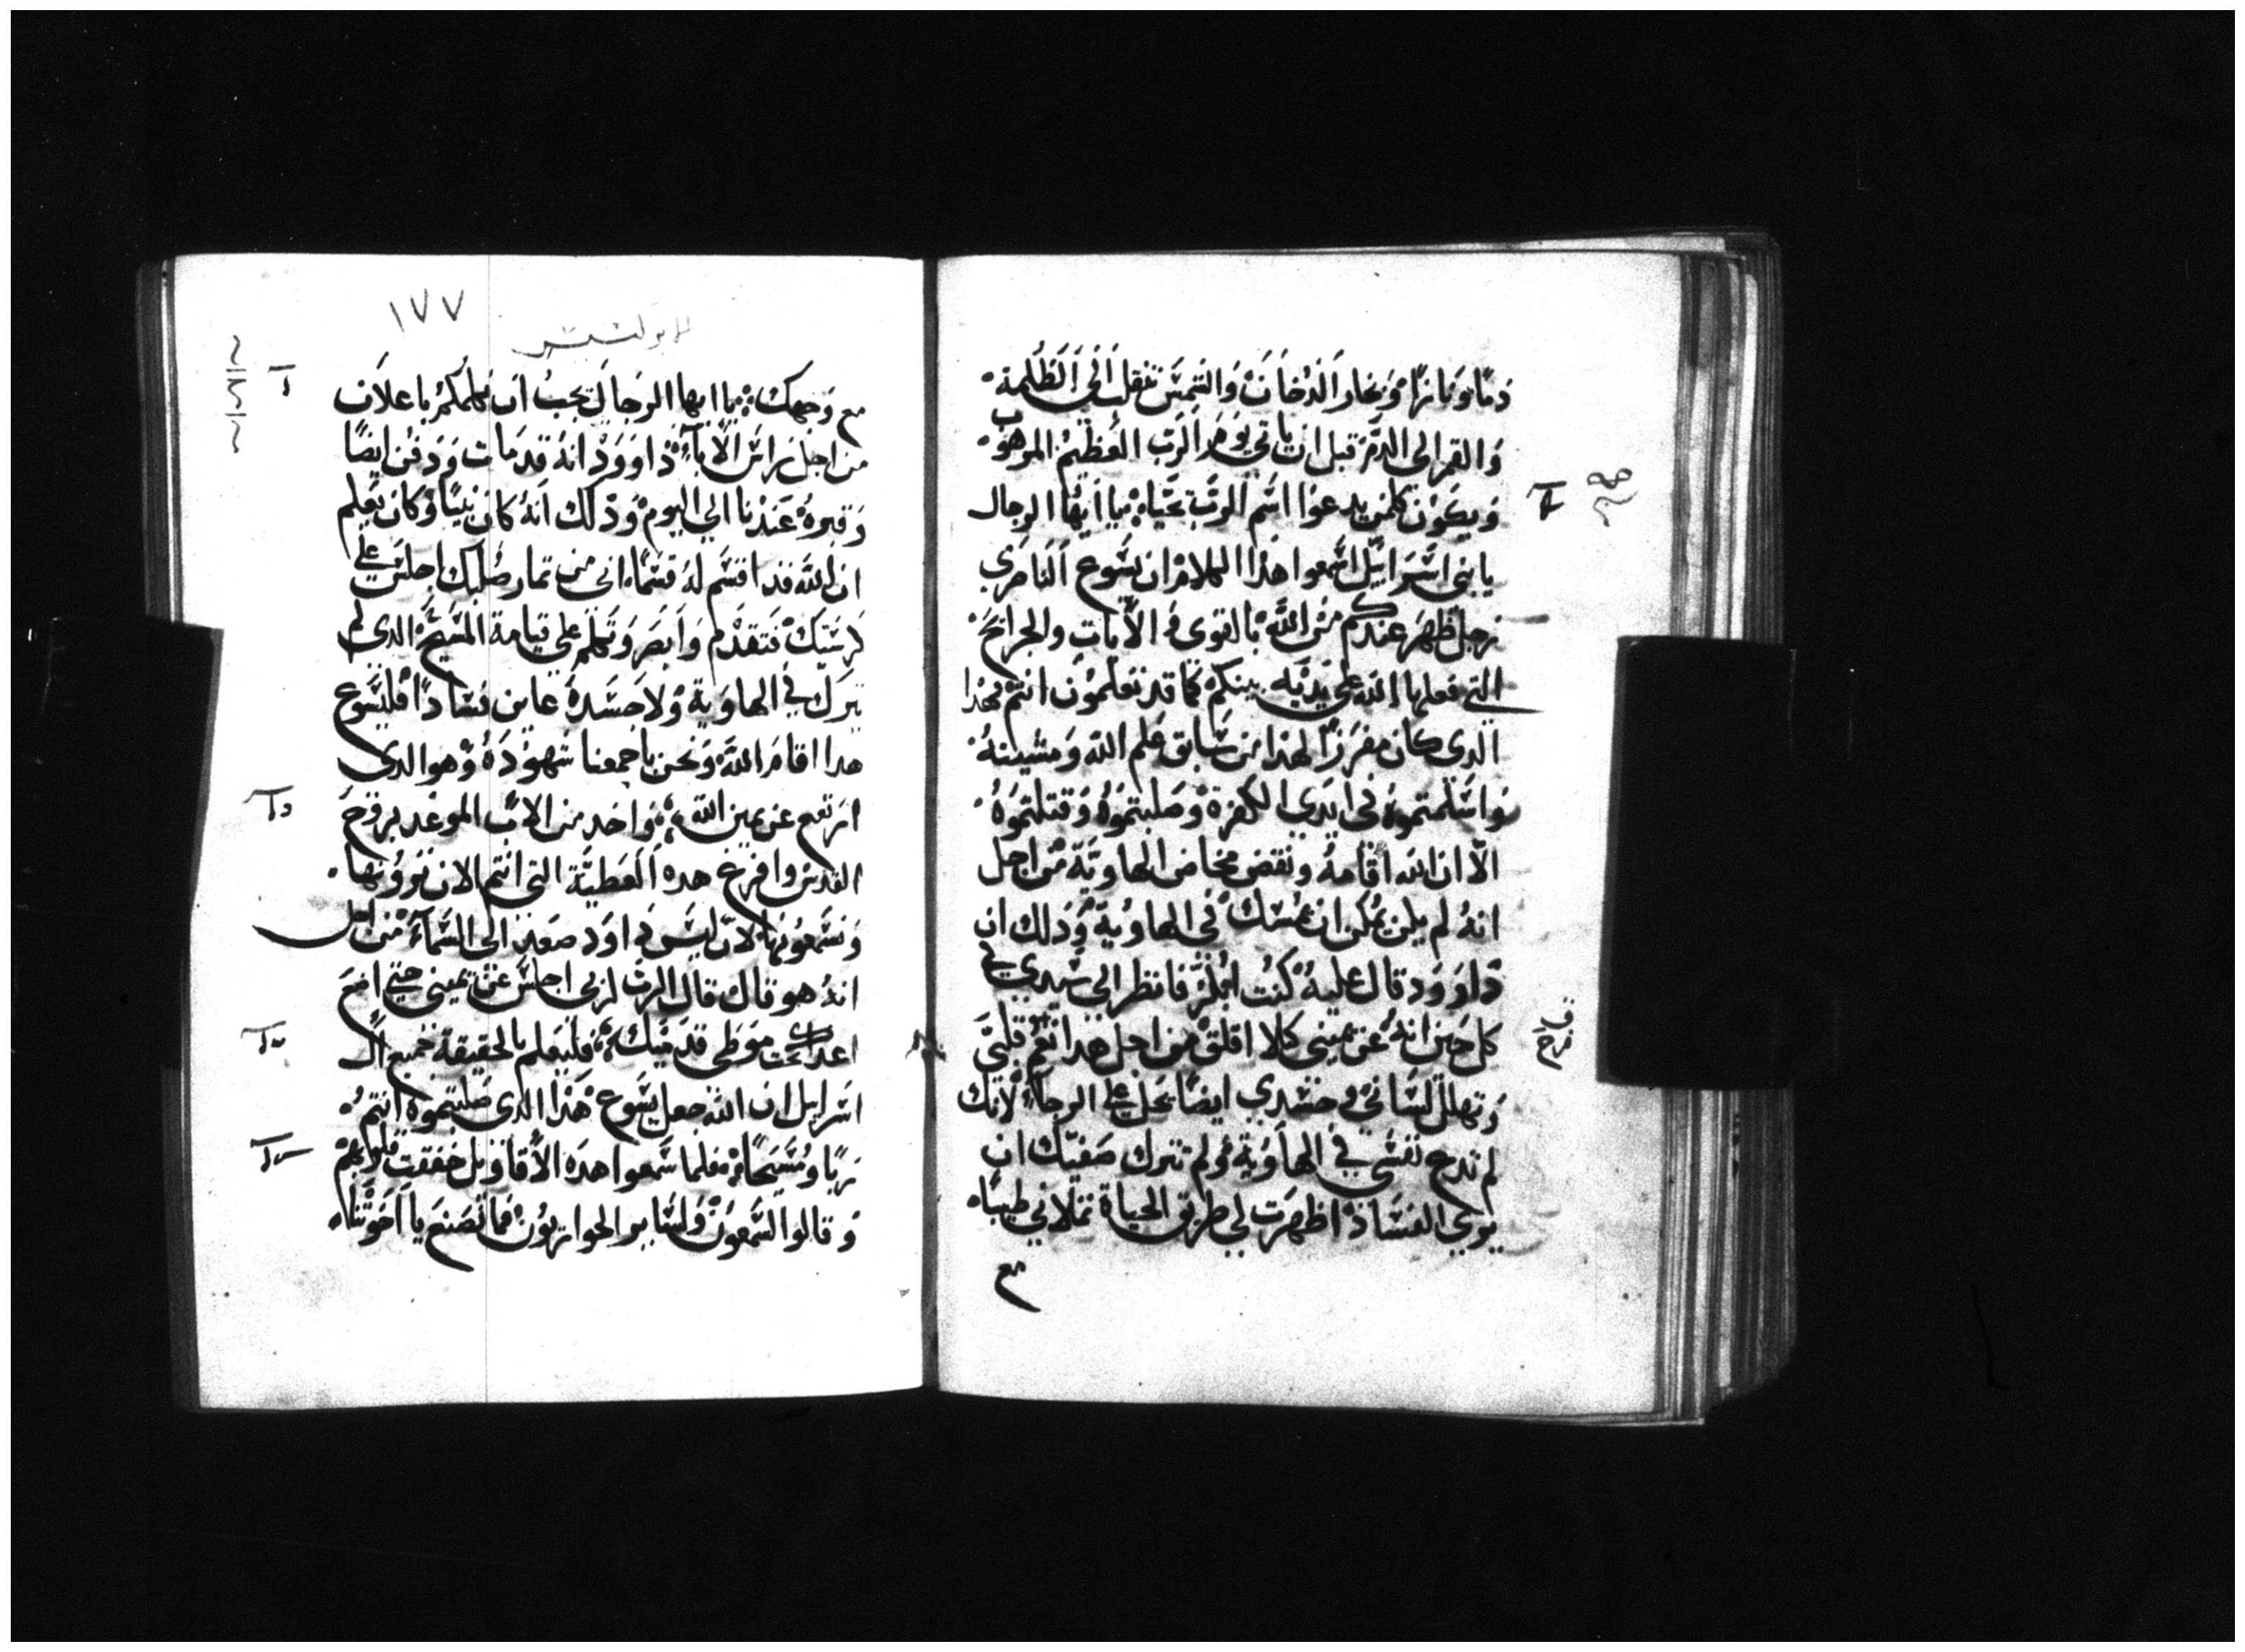 دمًا ونارًا وبخار الدخان والشمس تنقلب الى الظلمة
والقمر الى الدم قبل ان ياتي يوم الرب العظيم المرهوب
ويكون كلمن يدعوا اسم الرب يحياه يا ايها الرجال
يا بني اسرايل اسمعوا هذا الكلام ان يسوع الناصري
رجل ظهر عندكم من الله بالقوى والايات والجرايح
التي فعلها الله على يديه بينكم كما قد تعلمون انتم فهذا
الدى كان مفرزًا لهذا من سابق علم الله ومشيته
واسلمتموه في ايدى الكفرة وصلبتموه وقتلتموه
الا ان الله اقامه ونقض مخاض الهاوية من اجل
انه لم يكن يمكن ان يمسك في الهاوية وذلك ان
داوود قال عليه كنت ابكر فانظر الى سيدي في
كل حين انه عن يميني كلا اقلق من اجل هذا نعم قلبي
وتهلل لساني وجسدي ايضا يحل على الرجاء لانك
لم تدع نفسي في الهاوية ولم تترك صفيك ان
يري الفساد اظهرت لي طريق الحياة تملاني طيباه
مع
١٧٧
مع وجهك يا ايها الرجال يجب ان نكلمكم باعلان
من اجل راس الاباء داوود انه قد مات ودفن ايضًا
وقبره عندنا الي اليوم وذلك انه كان نبيًا وكان يعلم
ان الله قد اقسم له قسمًا اني من ثمار صلبك اجلس على
كرسيك فتقدم وابصر وتكلم على قيامة المسيح الدى لم
يترك في الهاوية ولا جسده عاين فسادًا فليسوع
هدا اقام الله ونحن باجمعنا شهوده وهو الدى
ارتفع عن يمين الله واخد من الاب الموعد بروح
القدس وافرغ هده العطية التي انتم الان ترونها
وتسمعونها لان ليس داود صعد الى السماء من اجل
انه هو قال قال الرب لربي اجلس عن يميني حتى اضع
اعداك تحت موطى قدميك فليعلم بالحقيقة جميع ال
اسرايل ان الله جعل يسوع هذا الدى صلبتموه انتم
ربًا ومسيحًا فلما سمعوا هده الاقاويل خفقت قلوبهم
وقالوا لسمعون ولساير الحواريون فما نصنع يا اخوتنا